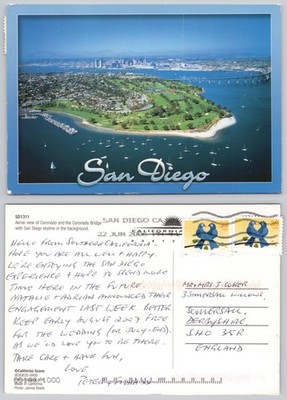 San Diego
SD1311
Aerial view of Coronado and the Coronado Bridge
with San Diego skyline in the background.
SAN DIEGO CA
22 JUN 2006
CALIFORNIA
HELLO FROM SOUTHERN CALIFORNIA!
HOPE YOU ARE ALL WELL & HAPPY.
WE'RE ENJOYING THE SAN DIEGO
EXPERIENCE & HOPE TO SPEND MORE
TIME HERE IN THE FUTURE
NATALIE & ADRIAN ANNOUNCED THEIR
ENGAGEMENT LAST WEEK BETTER
KEEP EARLY AUGUST 2007 FREE
FOR THE WEDDING (OR JULY-END)
AS WE'D LOVE YOU TO BE THERE.
TAKE CARE & HAVE FUN,
LOVE
PETER
MR & MRS J.
3 SOMERSALL WILLOWS,
SOMERSALL,
DERBYSHIRE,
S40 3SR
ENGLAND
©California Scene